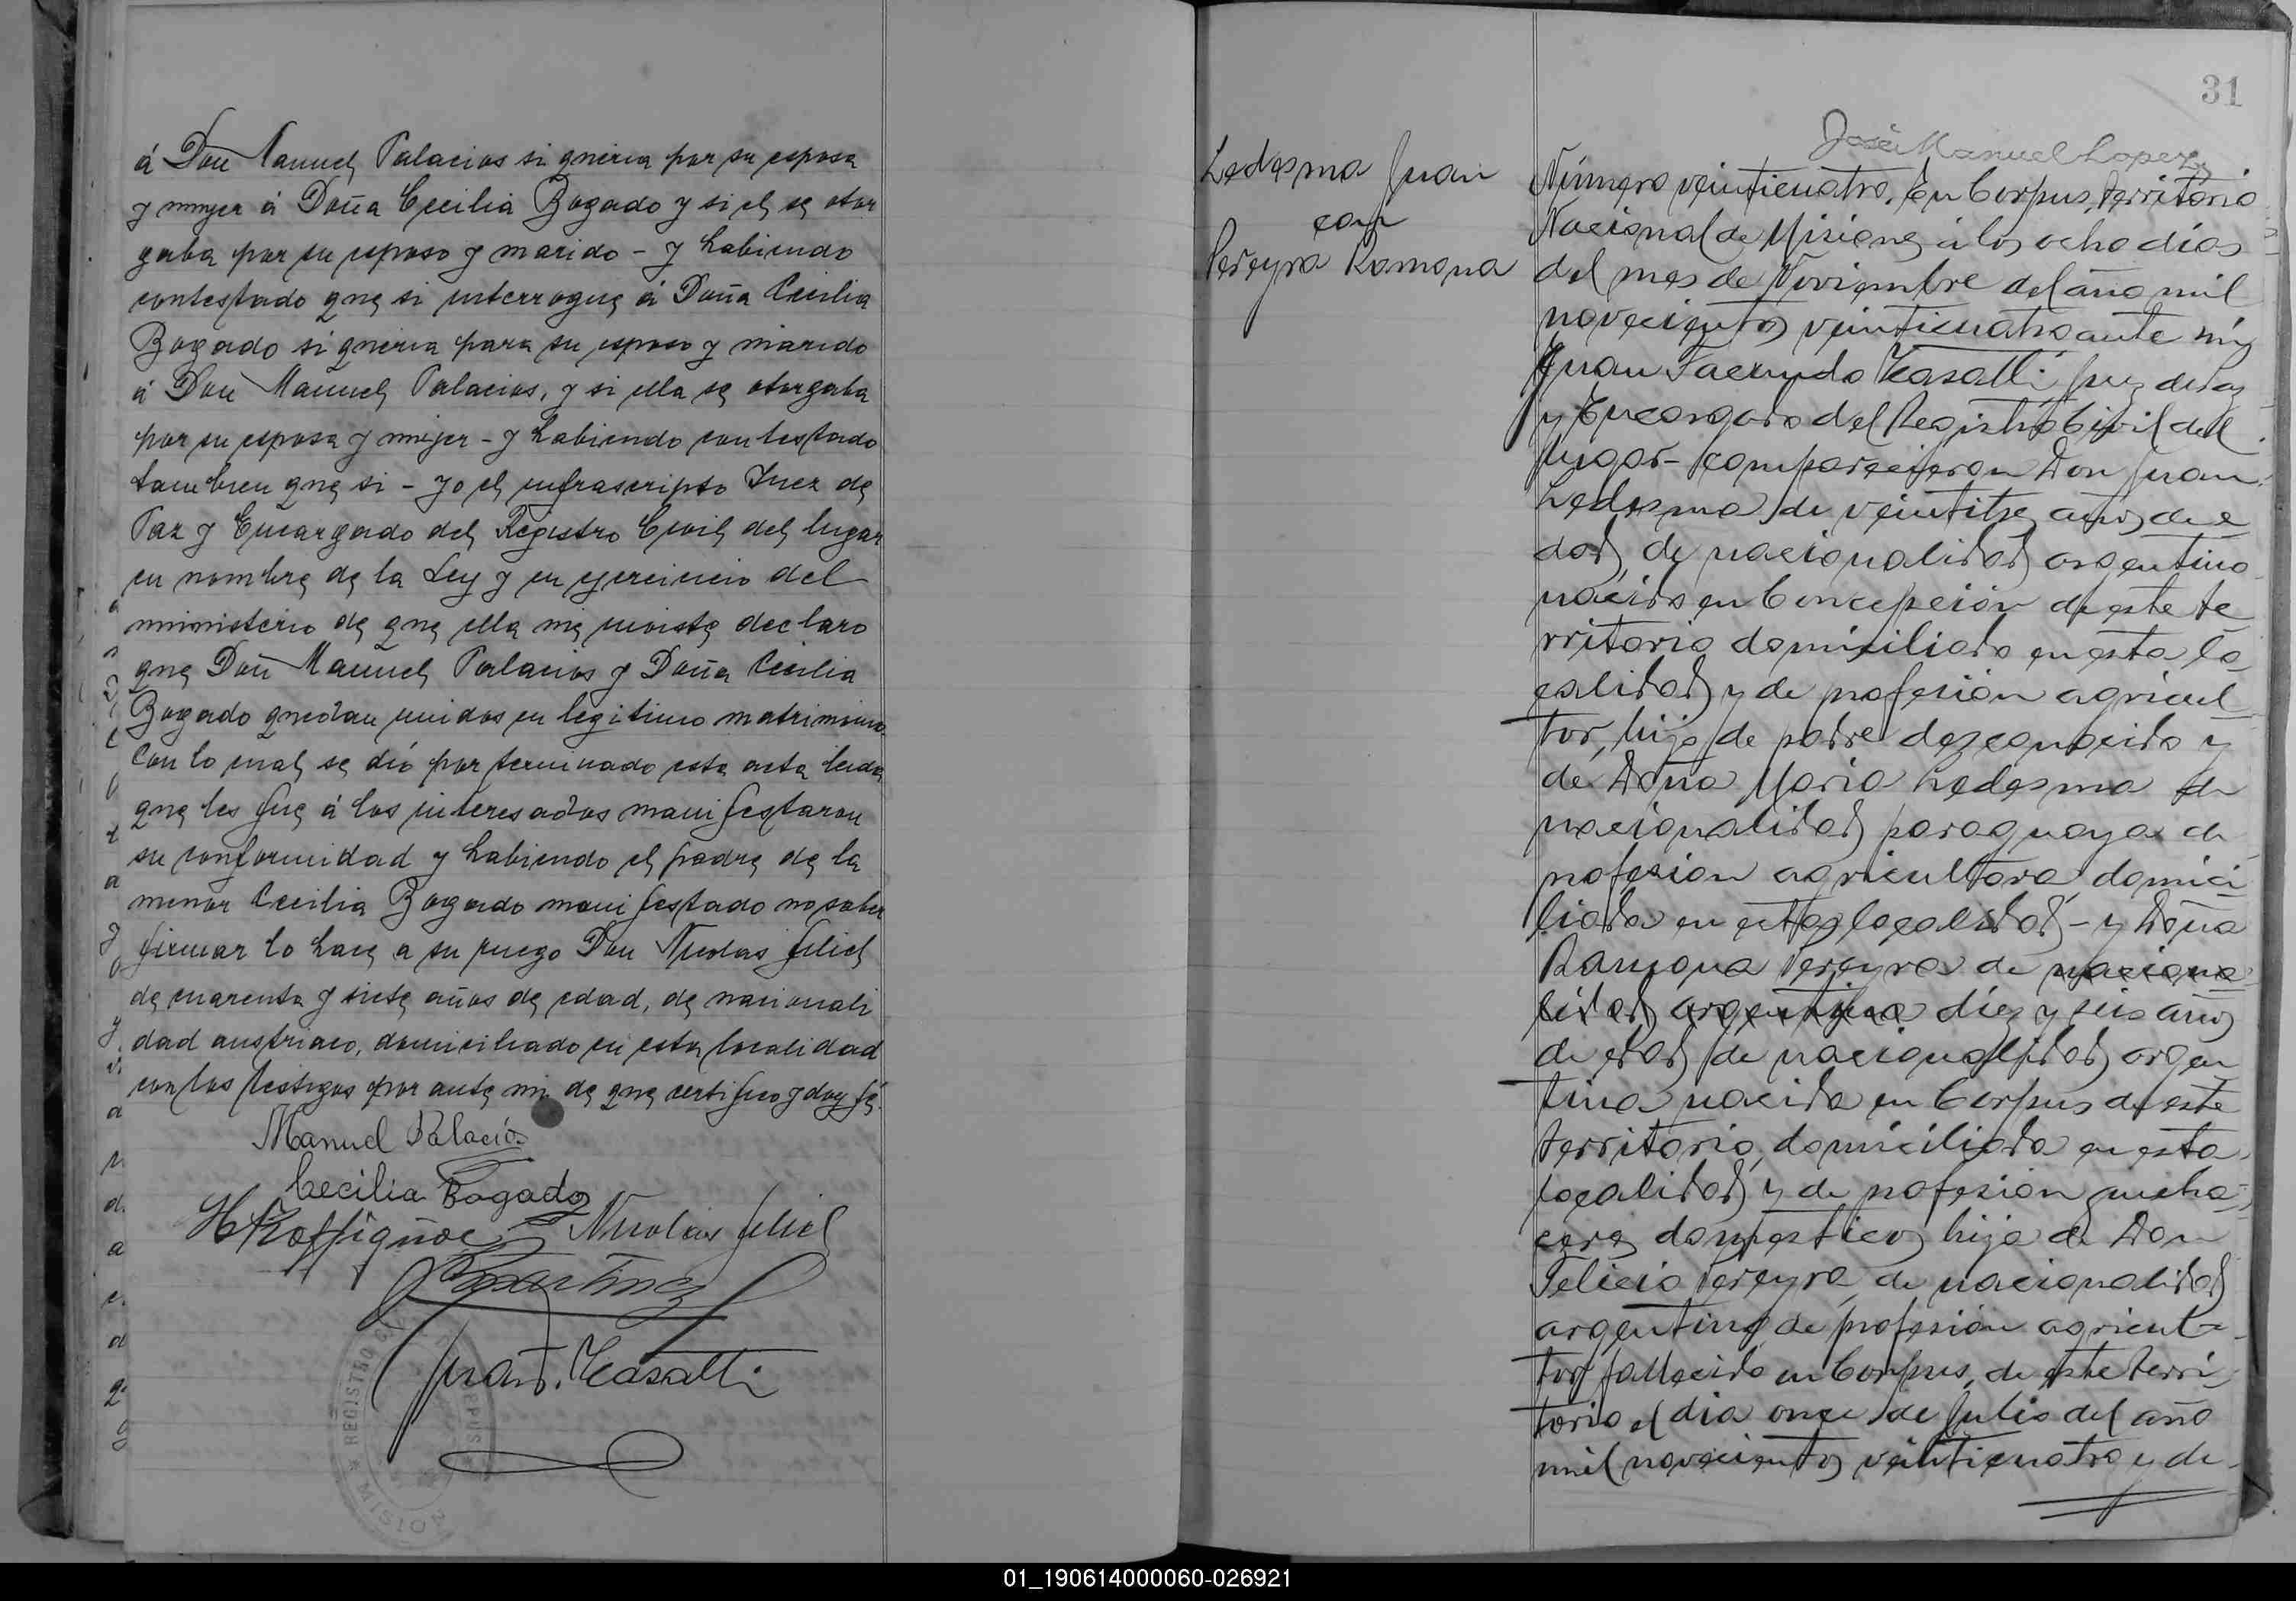 á Don Manuel Palacios si queria por su esposa
y mujer á Doña Cecilia Bogado y si el se otor
gaba por su esposo y marido - y habiendo
contestado que si interrogue á Doña Cecilia
Bogado si queria para su esposo y marido
á Don Manuel Palacios, y si ella se otorgaba
por su esposa y mujer - y habiendo contestado
tambien que si - yo el infrascripto Juez de
Paz y Encargado del Registro Civil del lugar
en nombre de la Ley y en ejercicio del
ministerio de que ella me inviste declaro
que Don Manuel Palacios y Doña Cecilia
Bogado quedan unidos en legitimo matrimonio.
Con lo cual se dió por terminado esta acta leida
que les fue á los interesados manifestaron
su conformidad y habiendo el padre de la
menor Cecilia Bogado manifestado no saber
firmar lo hace a su ruego Don Nicolas
de cuarenta y siete años de edad, de nacionali
dad austriaco, domiciliado en esta localidad
con los testigos por ante mi de que certifico y doy fé.
Manuel Palacios
Cecilia Bogado
Nicolas
Juan F. Casatti
REGISTRO CORPUS MISIO
31
José Manuel Lopez
Ledesma Juan
con
Pereyra Ramona
Número veinticuatro. En Corpus, territorio
Nacional de Misiones á los ocho días
del mes de Noviembre del año mil
novecientos veinticuatro ante mí
Juan Facundo Casatti Juez de Paz
y Encargado del Registro Civil del
lugar - comparecieron Don Juan
Ledesma de veintitres años de e
dad, de nacionalidad argentino
nacido en Concepción de este te
rritorio domiciliado en esta lo
calidad y de profesión agricul
tor, hijo de padre desconocido y
de Doña Maria Ledesma de
nacionalidad paraguaya de
profesion agricultora domici
liada en esta localidad - y Doña
Ramona Pereyra de naciona
lidad argentina diez y seis años
de edad de nacionalidad argen
tina nacida en Corpus de este
territorio, domiciliada en esta
localidad y de profesion queha
ceres domesticos hija de Don
Felicio Pereyra de nacionalidad
argentino de profesión agricul
tor fallecido en Corpus, de este terri
torio el dia once de Julio del año
mil novecientos veinticuatro y de
01_190614000060-026921